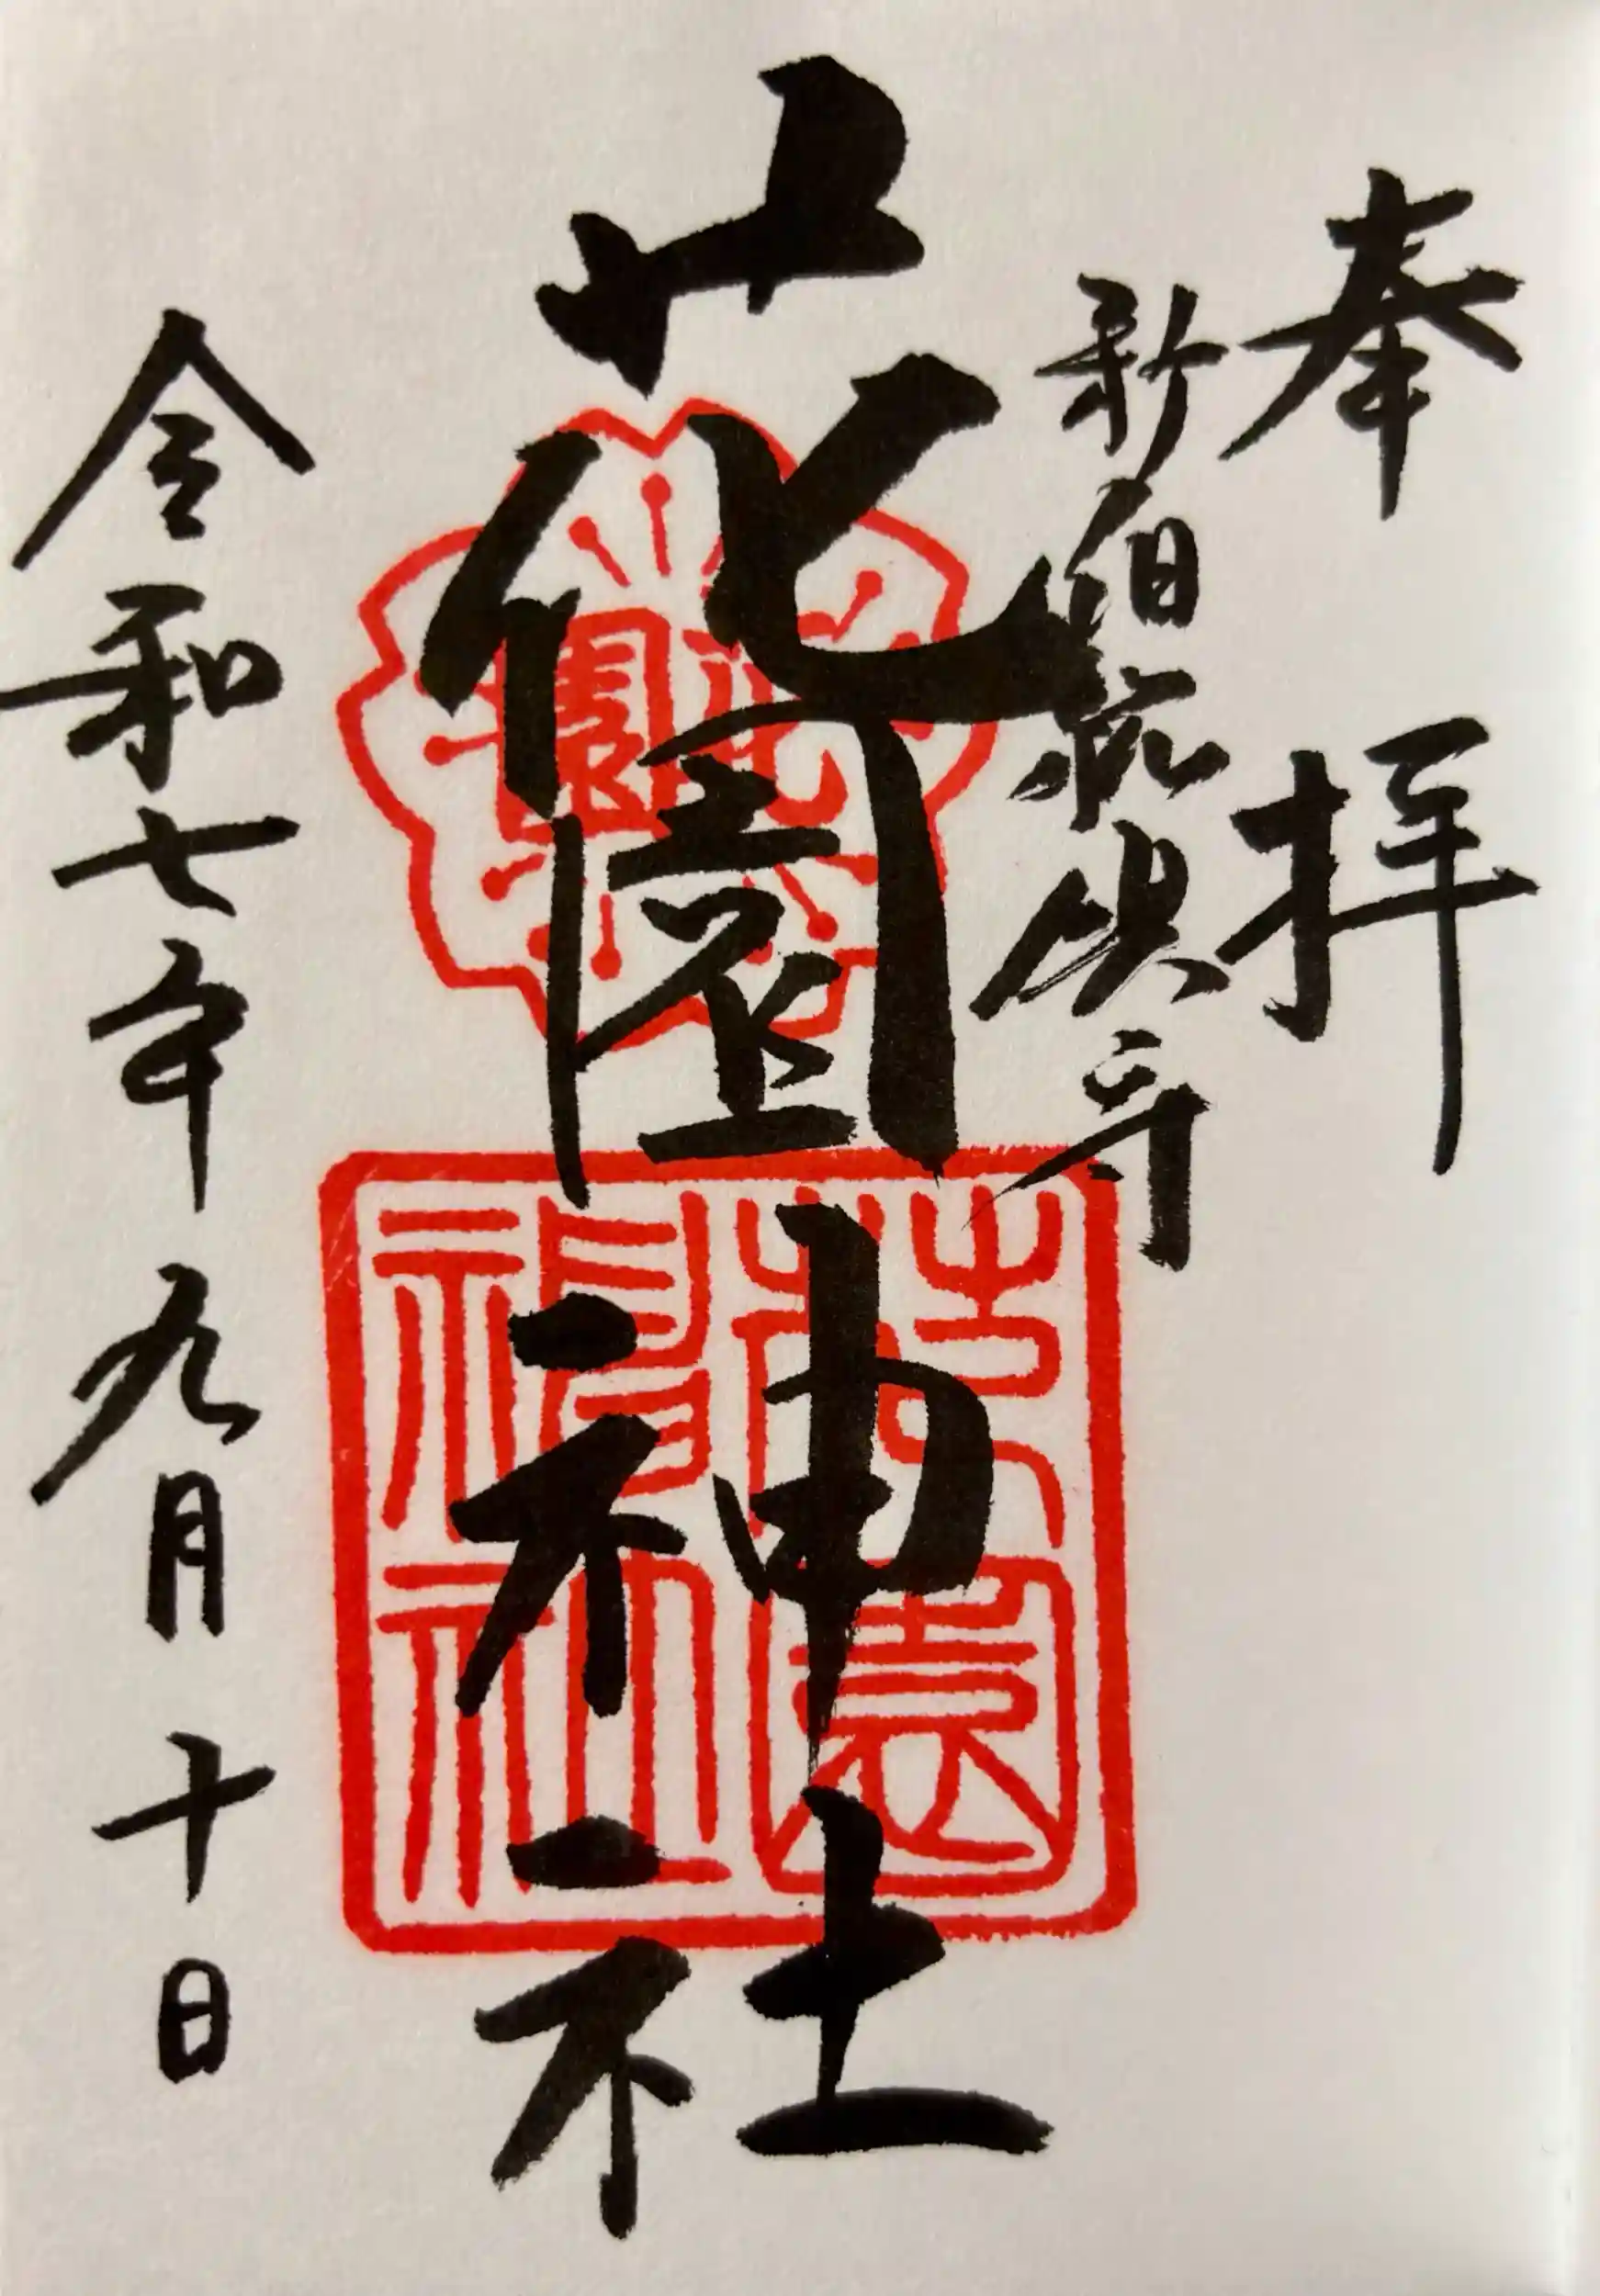 奉拝
新宿総鎮守
花園神社
花園
花園神社
令和七年九月十日